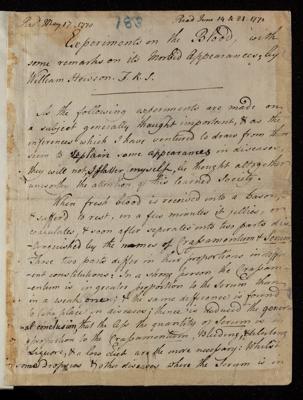 Recd May 17. 1770
183
Read June 14 & 21. 1770
Experiments on the Blood, with
some remarks on its Morbid Appearances; by
William Hewson. F.R.S.
As the following experiments are made on
a subject generally thought important, & as the
inferences which I have ventured to draw from them
seem to explain some appearances in diseases
they will not, I flatter myself, be thought altogether
unworthy the attention of this learned Society.
When fresh blood is received into a bason,
& suffered to rest, in a few minutes it jellies, or
coagulates, & soon after separates into two parts dis-
tinguished by the names of Crassamentum & Serum.
These two parts differ in their proportions in differ-
ent constitutions: In a strong person the Crassam-
entum is in greater proportion to the Serum than
in a weak one; & the same difference is found
to take place in diseases; hence is deduced the general
conclusion, that the less the quantity of Serum is in
proportion to the Crassamentum, Bleeding, & diluting
Liquors, & a low diet are the more necessary: Whilst in
some dropsies & other diseases where the Serum is in